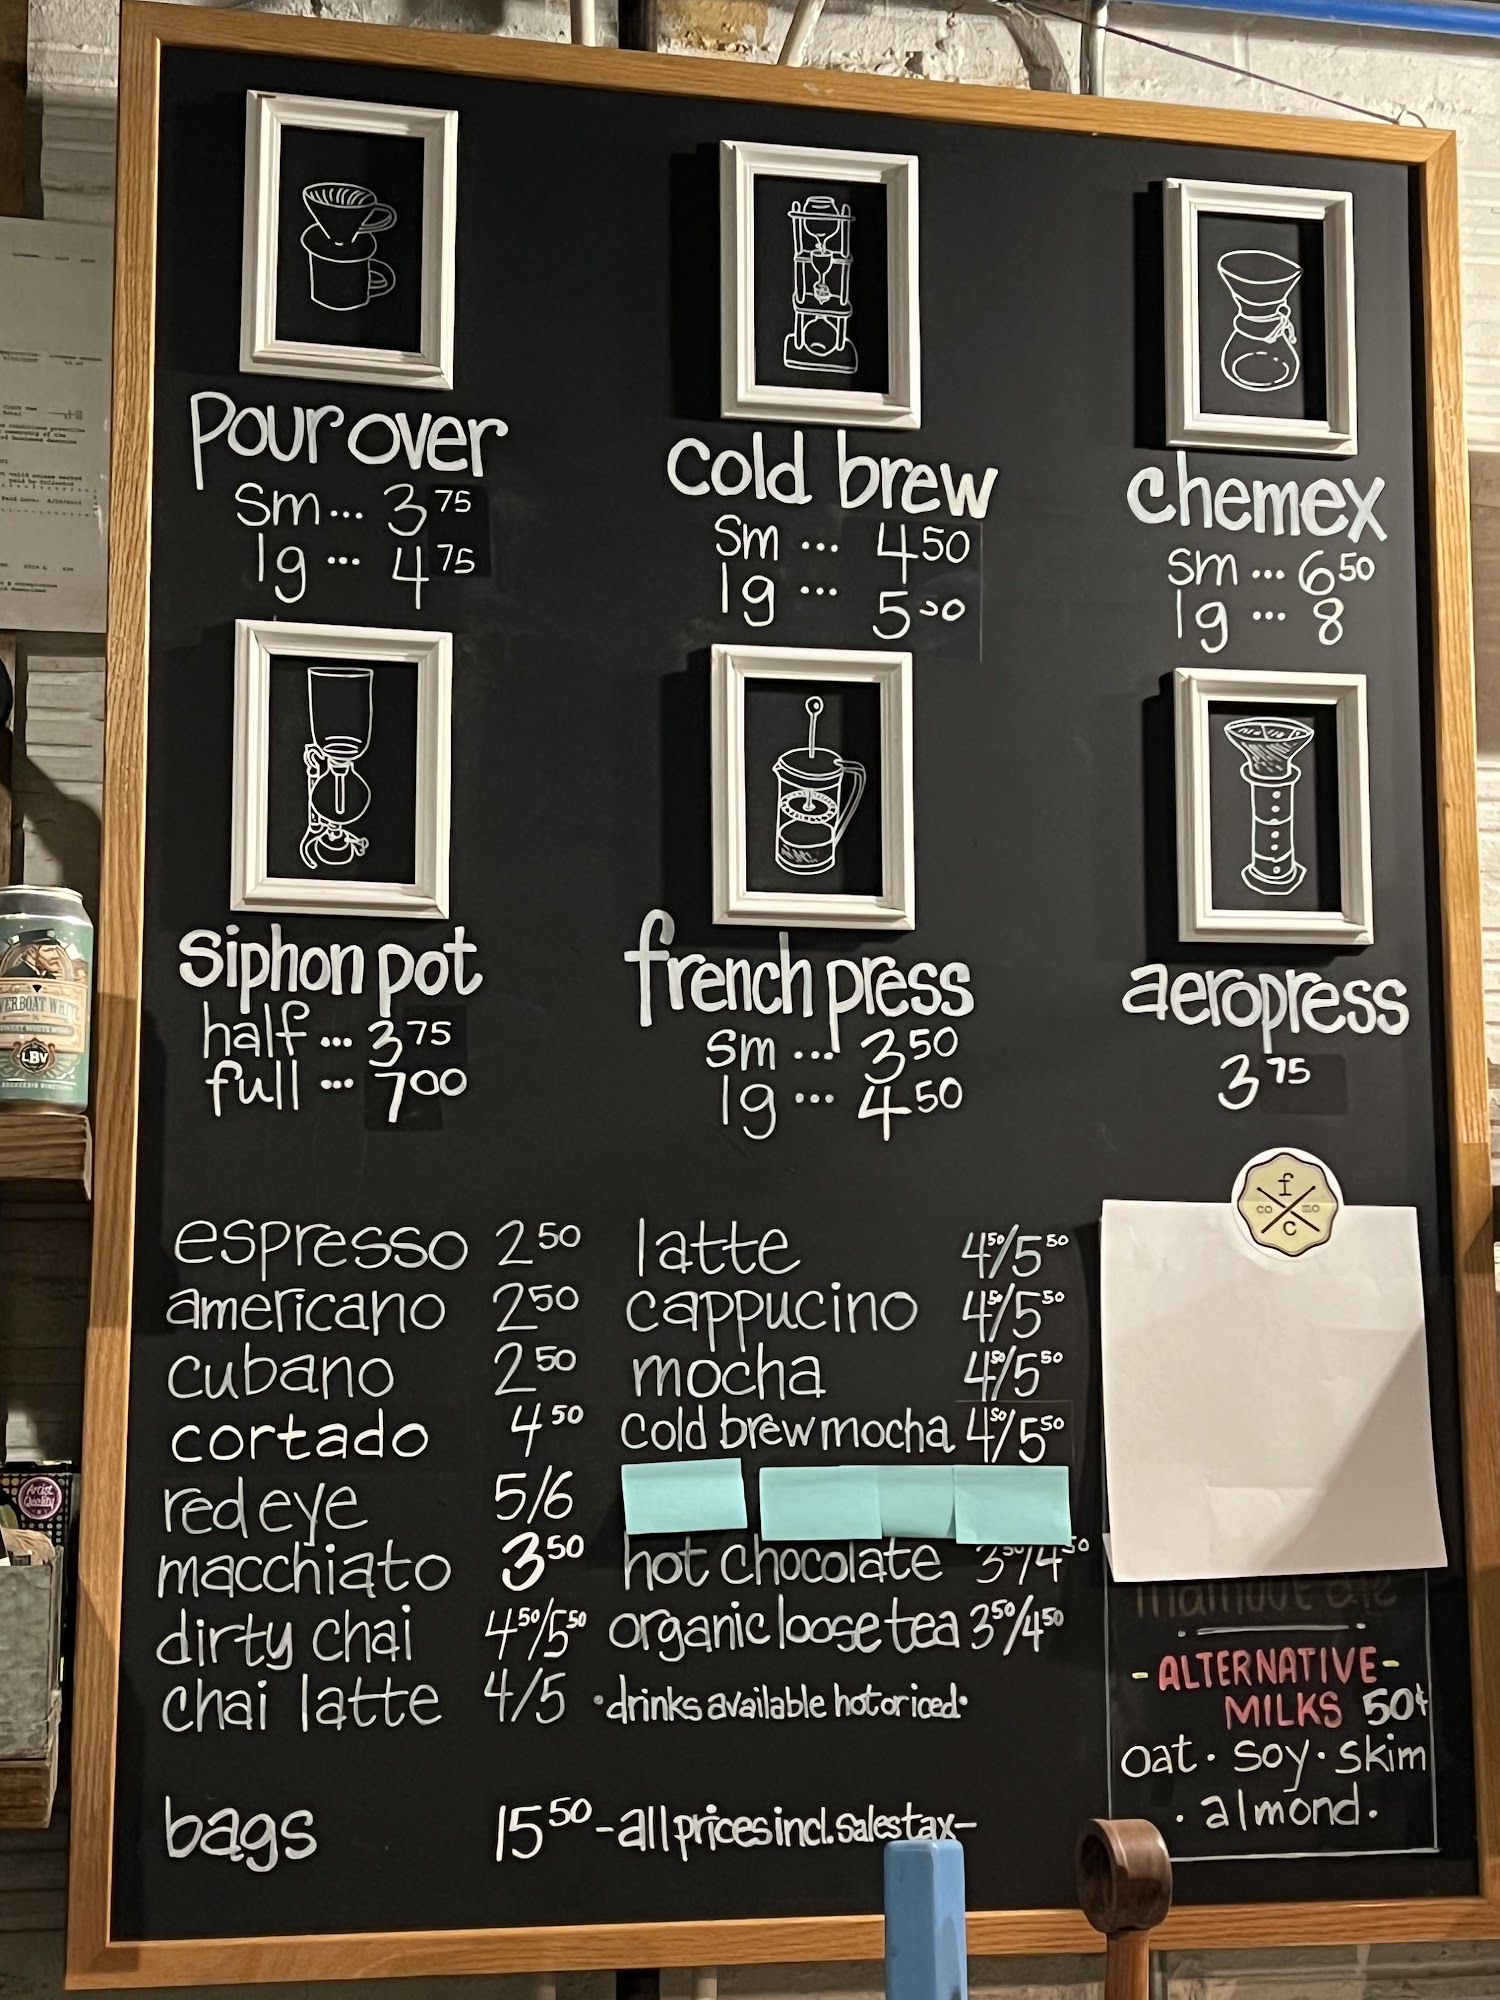 pour over
sm... 3 75
lg... 4 75
cold brew
sm... 4 50
lg... 5 50
chemex
sm... 6 50
lg... 8
siphon pot
half... 3 75
full... 7 00
french press
sm... 3 50
lg... 4 50
aeropress
3 75
espresso 2 50
americano 2 50
cubano 2 50
cortado 4 50
red eye 5/6
macchiato 3 50
dirty chai 4 50/5 50
chai latte 4/5
latte 4 50/5 50
cappucino 4 50/5 50
mocha 4 50/5 50
cold brew mocha 4 50/5 50
hot chocolate 3 50/4 50
organic loose tea 3 50/4 50
•drinks available hot or iced•
bags 15 50 -all prices incl. sales tax-
f
co mo
c
-ALTERNATIVE-
MILKS 50¢
oat • soy • skim
• almond •
LBV
Artist
Quality